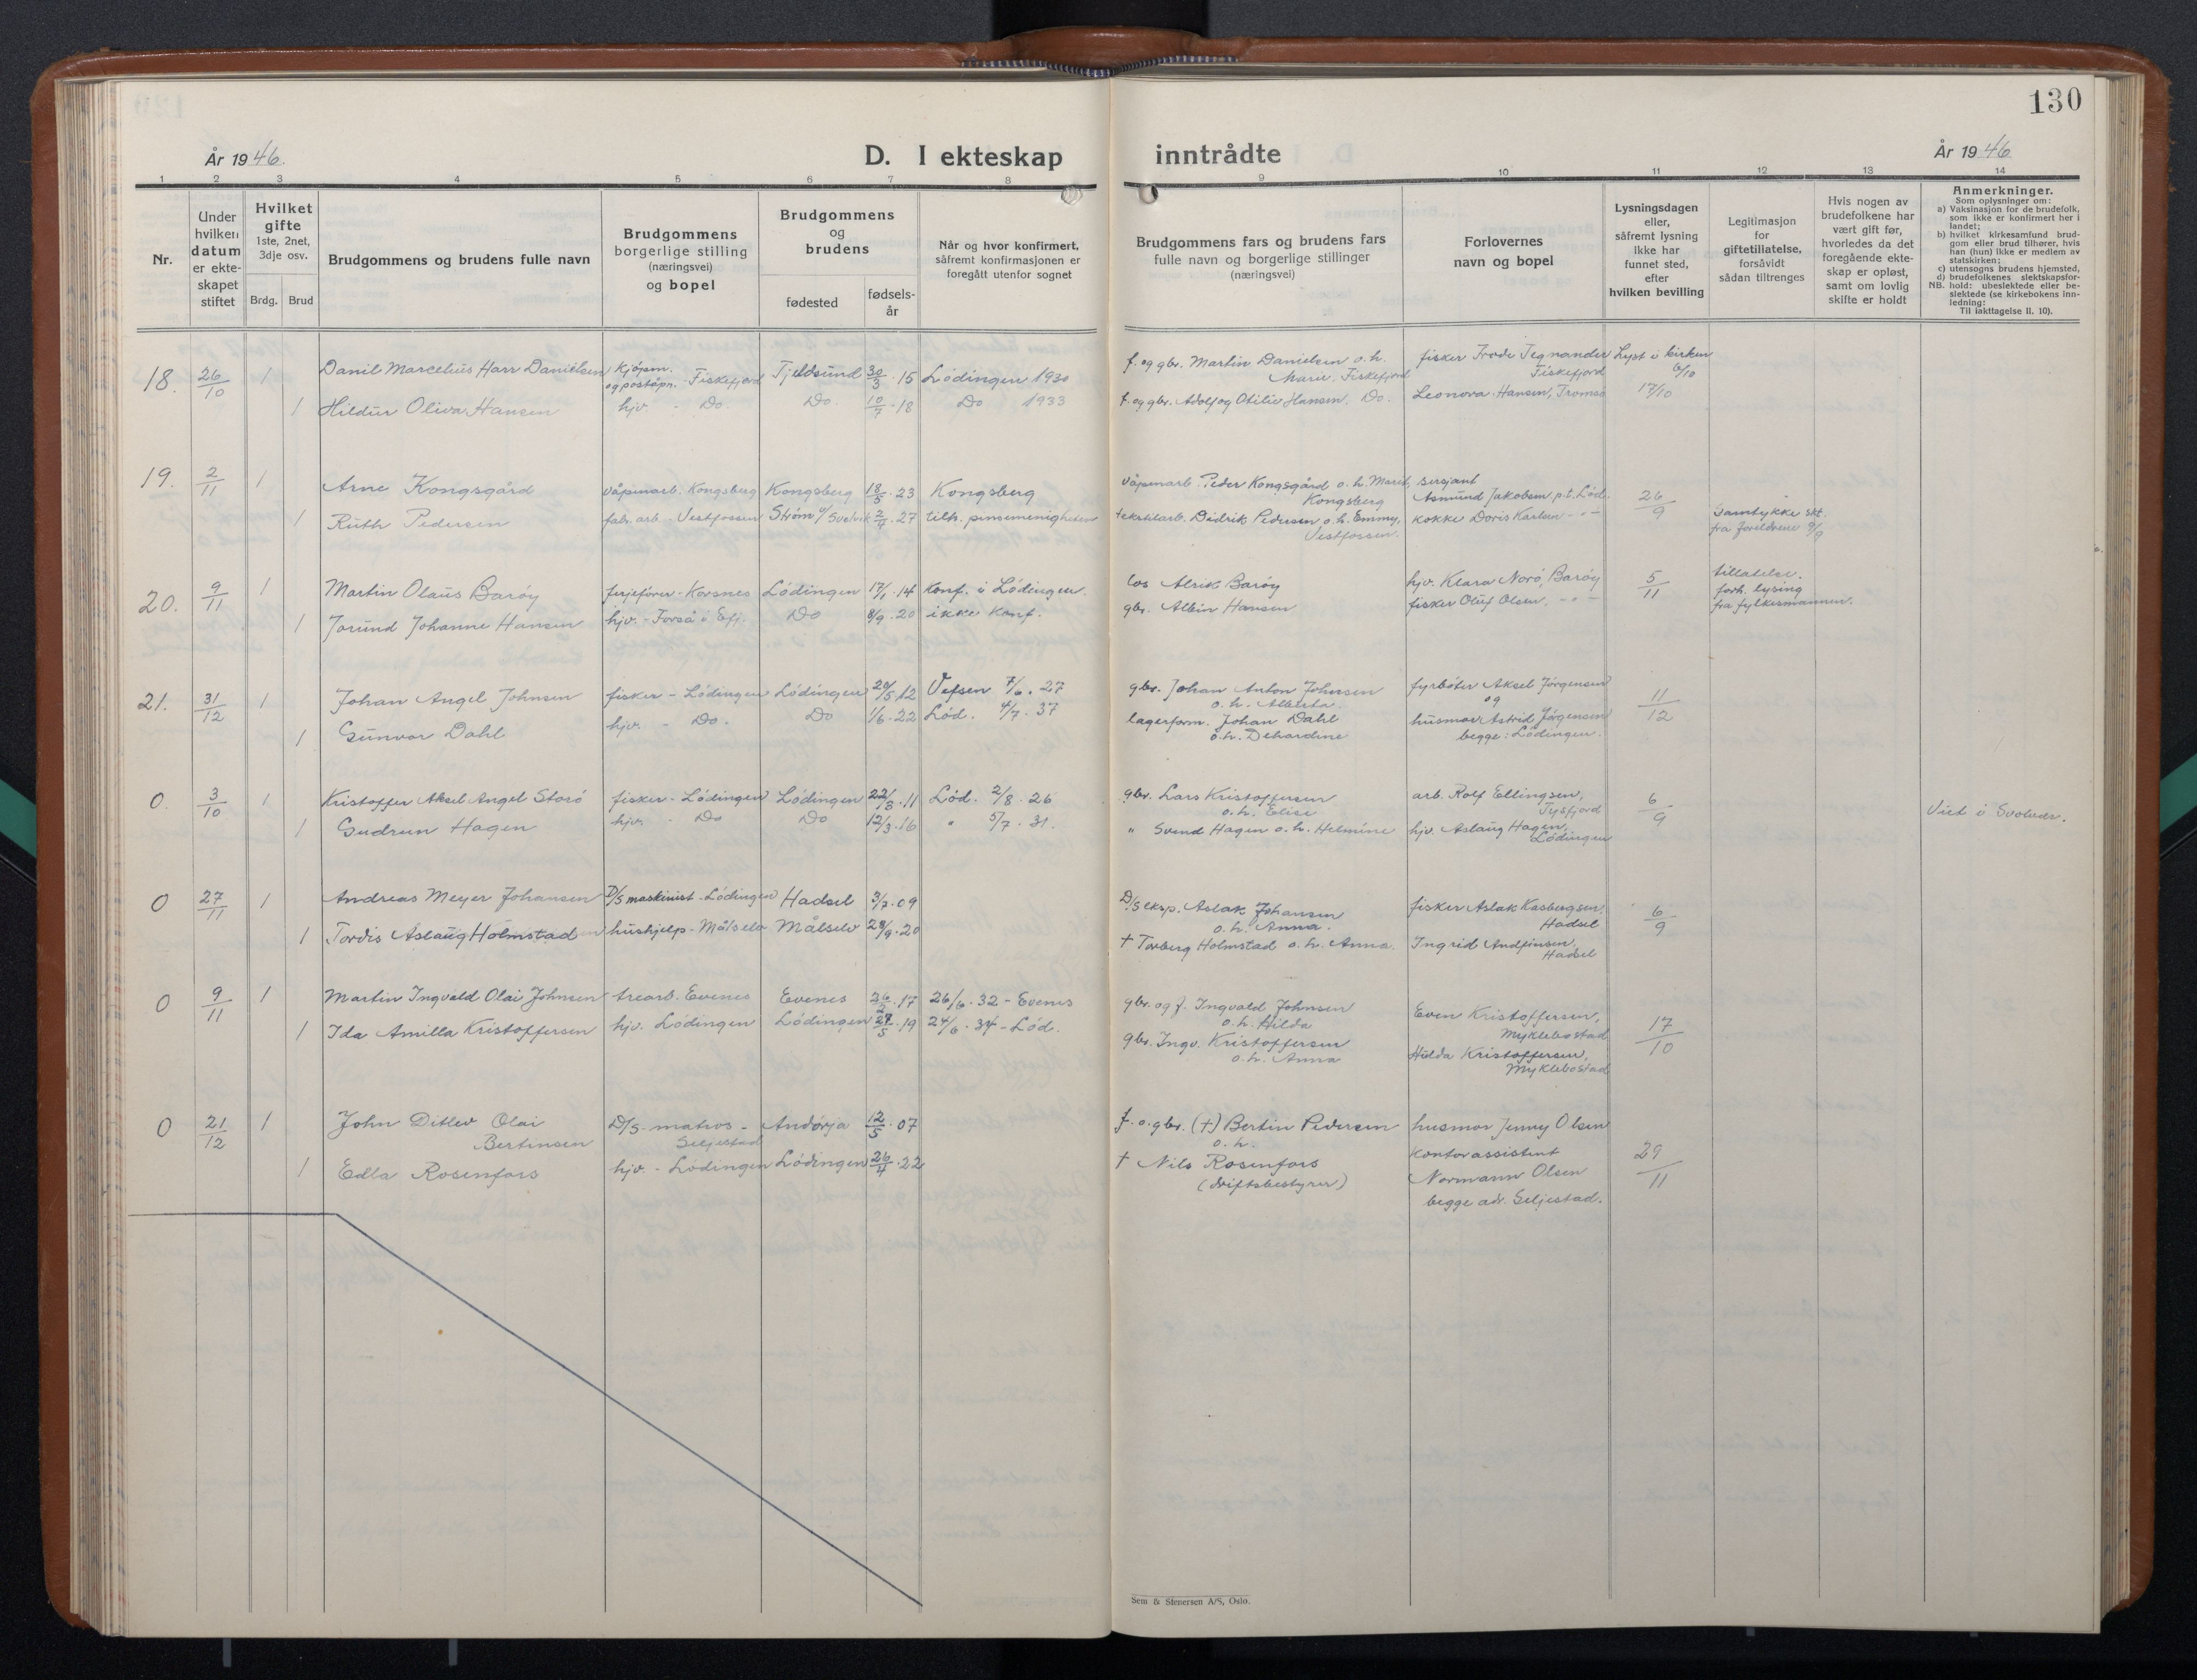 130
År 1946.
D. I ekteskap
inntrådte
År 1946
1 2 3 4 5 6 7 8 9 10 11 12 13 14
Nr.
Under
hvilken
datum
er ekte-
skapet
stiftet
Hvilket
gifte
1ste, 2net,
3dje osv.
Brdg. Brud
Brudgommens og brudens fulle navn
Brudgommens
borgerlige stilling
(næringsvei)
og bopel
Brudgommens
og
brudens
fødested
fødsels-
år
Når og hvor konfirmert,
såfremt konfirmasjonen er
foregått utenfor sognet
Brudgommens fars og brudens fars
fulle navn og borgerlige stillinger
(næringsvei)
Forlovernes
navn og bopel
Lysningsdagen
eller,
såfremt lysning
ikke har
funnet sted,
efter
hvilken bevilling
Legitimasjon
for
giftetillatelse,
forsåvidt
sådan tiltrenges
Hvis nogen av
brudefolkene har
vært gift før,
hvorledes da det
foregående ekte-
skap er opløst,
samt om lovlig
skifte er holdt
Anmerkninger.
Som oplysninger om:
a) Vaksinasjon for de brudefolk,
som ikke er konfirmert her i
landet;
b) hvilket kirkesamfund brud-
gom eller brud tilhører, hvis
han (hun) ikke er medlem av
statskirken;
c) utensogns brudens hjemsted,
d) brudefolkenes slektskapsfor-
NB. hold: ubeslektede eller be-
slektede (se kirkebokens inn-
ledning:
Til iakttagelse II. 10).
18. 26/10 1 Danil Marcelius Harr Danielsen Kjøpm. og poståpn. - Fiskefjord Tjeldsund 30/3 · 15 Lødingen 1930 f. og gbr. Martin Danielsen o.h. Marie, Fiskefjord fisker Frode Tegnander Fiskefjord Lyst i kirken 6/10
1 Hildur Oliva Hansen hjv - Do. Do. 10/7 · 18 Do 1933 f. og gbr. Adolf og Otilie Hansen, Do. Leonora Hansen, Tromsø 17/10
19. 2/11 1 Arne Kongsgård våpenarb. Kongsberg Kongsberg 18/5 · 23 Kongsberg våpenarb. Peder Kongsgård o.h. Marit, Kongsberg sersjant Asmund Jakobsen p.t. Lød. 26/9
1 Ruth Pedersen fabr. arb. - Vestfossen Strøm i/ Svelvik 2/7 · 27 tilh. pinsemenigheten tekstilarb. Didrik Pedersen o.h. Emmy, Vestfossen. kokke Doris Karlsen - " - Samtykke skt. fra foreldrene 9/9
20. 9/11 1 Martin Olaus Barøy ferjefører - Korsnes Lødingen 17/1 · 14 Konf. i Lødingen. los Alrik Barøy hjv. Klara Norö, Barøy 5/11 tillatelse.
forh. lysing
fra fylkesmannen.
1 Jorund Johanne Hansen hjv. - Forså i Efj. Do 8/9 · 20 ikke konf. gbr. Albin Hansen fisker Oluf Olsen, - " -
21. 31/12 1 Johan Angel Johnsen fisker - Lødingen Lødingen 20/5 · 12 Vefsen 7/6 · 27 gbr. Johan Anton Johnsen o.h. Alberta. fyrbøter Aksel Jørgensen og 11/12
1 Gunvor Dahl hjv. - Do. Do 1/6 · 22 Lød. 4/7 · 37 lagerform. Johan Dahl o.h. Dehardine husmor Astrid Jørgensen begge: Lødingen.
0. 3/10 1 Kristoffer Aksel Angel Storö fisker - Lødingen Lødingen 22/3 · 11 Lød. 2/8 · 26 gbr. Lars Kristoffersen o.h. Elise arb. Rolf Ellingsen, Tysfjord 6/9 Viet i Svolvær.
1 Gudrun Hagen hjv. - Do Do 12/3 · 16 " 5/7 · 31. " Svend Hagen o.h. Helmine hjv. Aslaug Hagen, Lødingen
0 27/11 1 Andreas Meyer Johansen D/S maskinist - Lødingen Hadsel 3/7 · 09 D/S eksp. Aslak Johansen o.h. Anna. fisker Aslak Kasbergsen, Hadsel 6/9
1 Tordis Aslaug Holmstad hushjelp - Målselv Målselv 28/9 · 20 † Torberg Holmstad o.h. Anna. Ingrid Andfinsen, Hadsel
0 9/11 1 Martin Ingvald Olai Johnsen trearb. Evenes Evenes 26/2 · 17 26/6 · 32 - Evenes gbr. og f. Ingvald Johnsen o.h. Hilda Even Kristoffersen, Myklebostad 17/10
1 Ida Amilla Kristoffersen hjv. Lødingen Lødingen 27/5 · 19 24/6 · 34 - Lød. gbr. Ingv. Kristoffersen o.h. Anna Hilda Kristoffersen, Myklebostad
0 21/12 1 John Ditlev Olai Bertinsen D/S - matros - Seljestad Andørja 12/5 · 07 f. o. gbr. (†) Bertin Pedersen o.h. husmor Jenny Olsen 29/11
1 Edla Rosenfors hjv - Lødingen Lødingen 26/4 · 22 † Nils Rosenfors (driftsbestyrer) Kontorassistent Normann Olsen begge adr. Seljestad.
Sem & Stenersen A/S, Oslo.